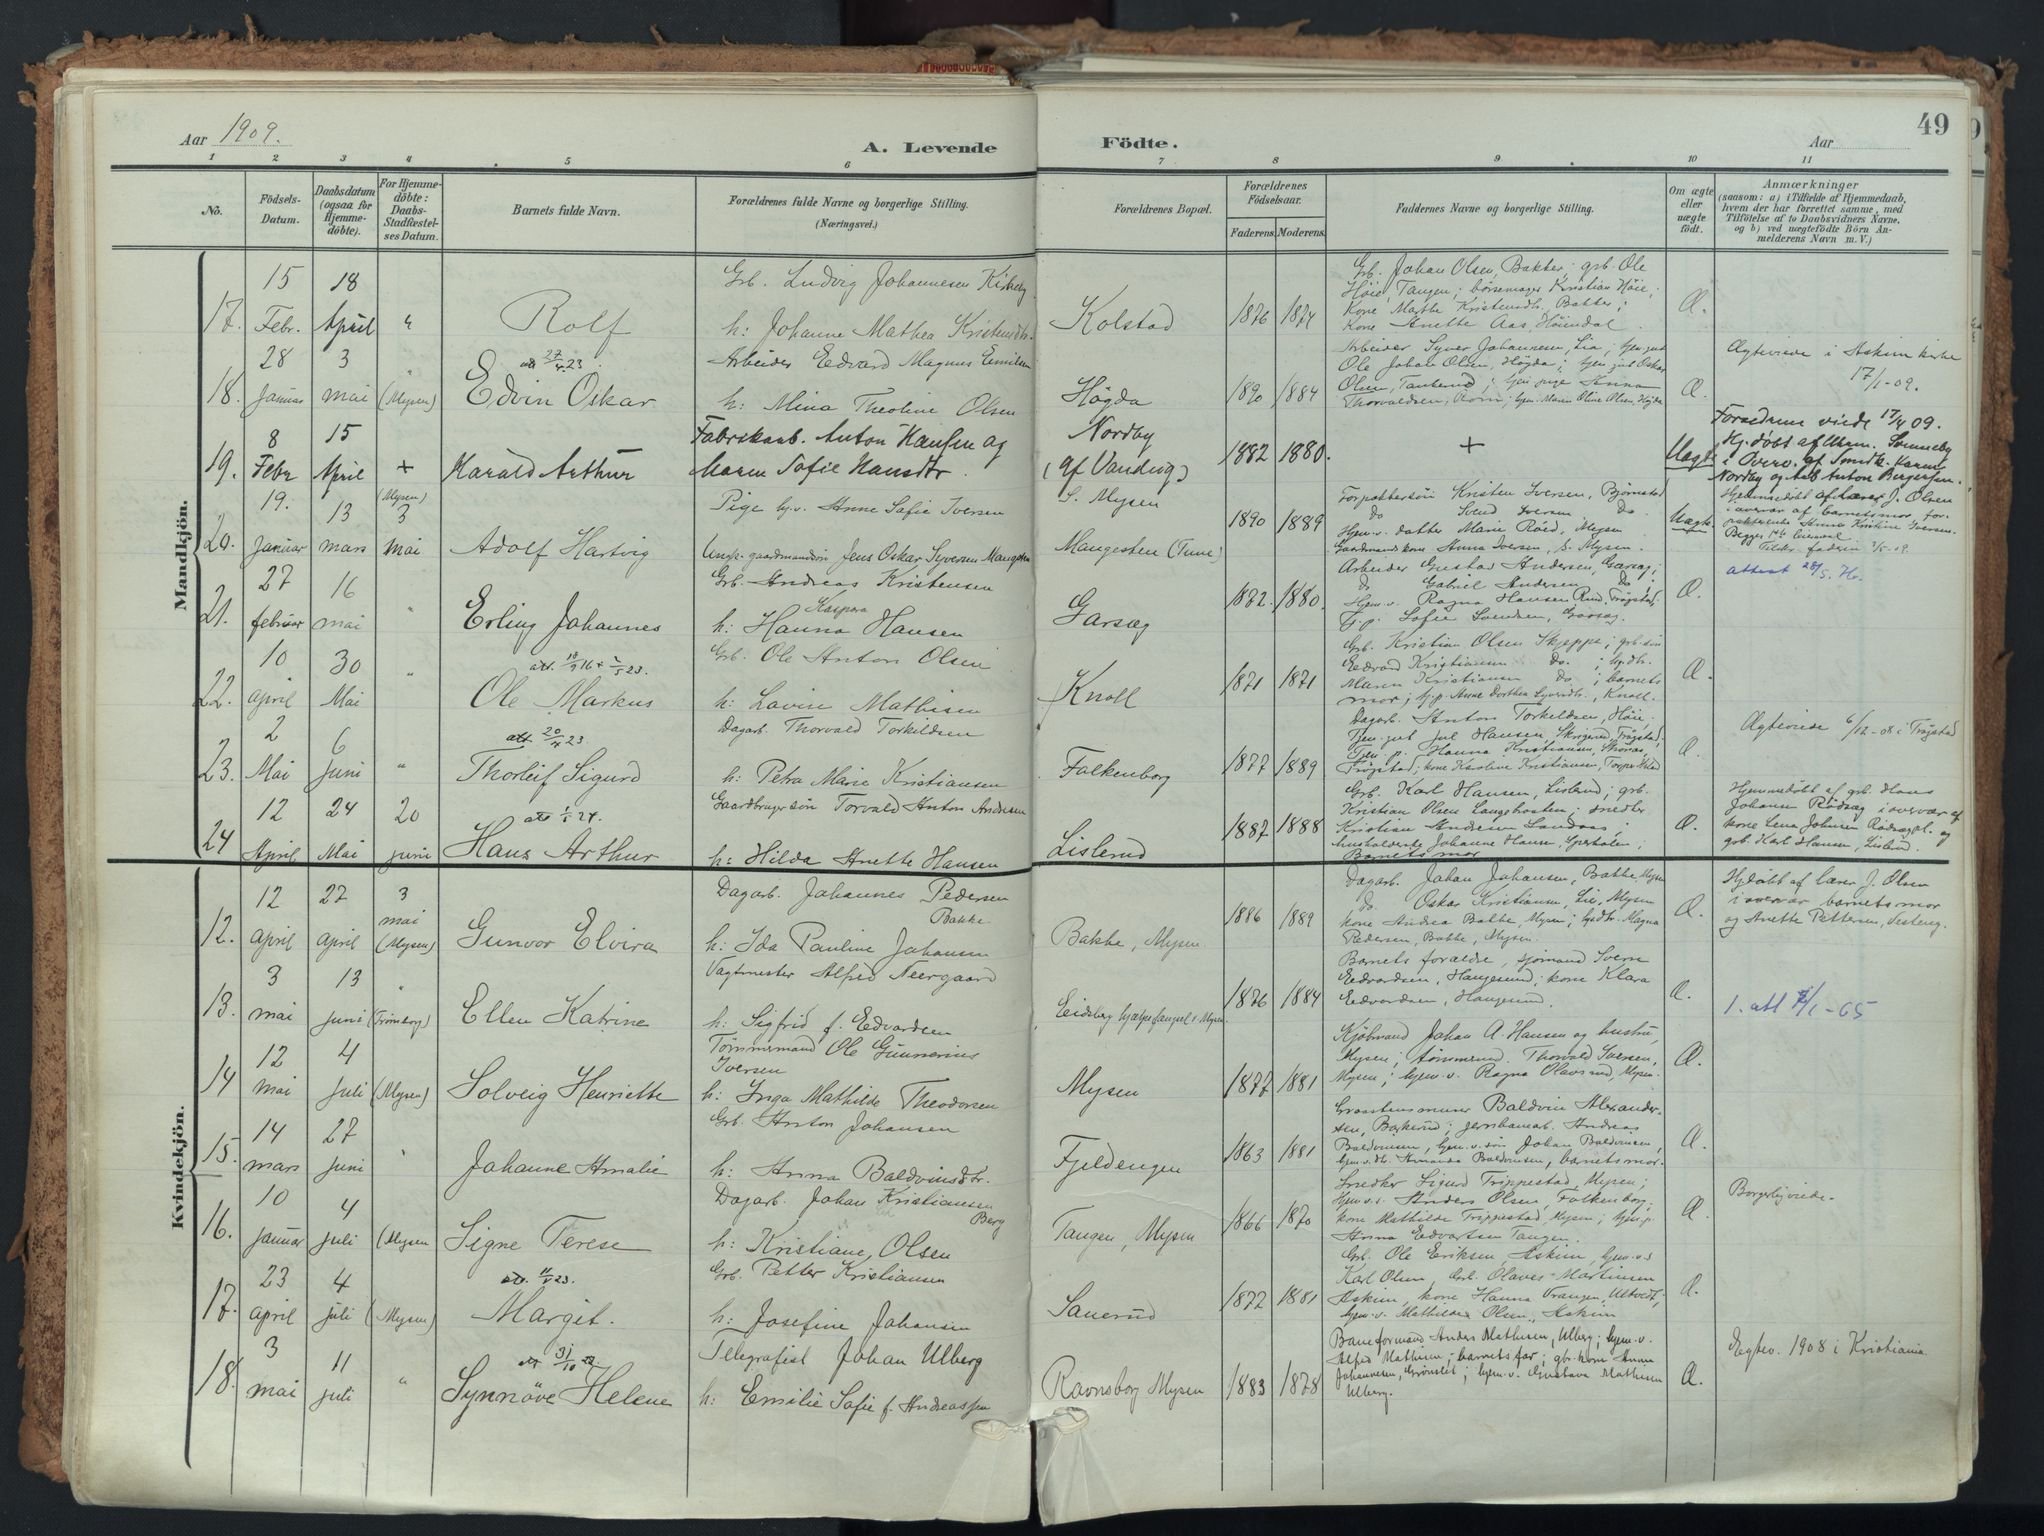 Aar 1909.
A. Levende Födte.
Aar
49
1 2 3 4 5 6 7 8 9 10 11
No.
Födsels-
Datum.
Daabsdatum
(ogsaa for
Hjemme-
döbte).
For Hjemme-
döbte:
Daabs-
Stadfæstel-
ses Datum.
Barnets fulde Navn.
Forældrenes fulde Navne og borgerlige Stilling.
(Næringsvei.)
Forældrenes Bopæl.
Forældrenes
Födselsaar.
Faderens. Moderens.
Faddernes Navne og borgerlige Stilling.
Om ægte
eller
uægte
födt.
Anmærkninger
(saasom: a) i Tilfælde af Hjemmedaab,
hvem der har forrettet samme, med
Tilföielse af to Daabsvidners Navne,
og b) ved uægtefödte Börn An-
melderens Navn m. V.)
Mandkjön.
17. 15 Febr. 18 April "
Rolf
Grb. Ludvig Johannesen Kirkeby
h: Johanne Mathea Kristensdtr.
Kolstad
1876 1874
Grb. Johan Olsen, Bakker; grb. Ole
Höie, Tangen; börsemager Kristian Höie;
Kone Marthe Kristensdtr. Bakker;
Kone Anette Aas, Höiendal.
Æ.
18. 28 Januar 3 mai " (Mysen)
att 27/4 23.
Edvin Oskar
Arbeider Edvard Magnus Emilsen
h: Mina Theoline Olsen
Högda
1890 1884
Arbeider Syver Johannesen, Lia; tjen.gut
Ole Johan Olsen, Högda; tjen gut Oskar
Olsen, ; tjen pige Anna
Thorvaldsen, ; hjv. Maren Oline Olsen, Högda
Æ.
Ægteviede i Askim kirke
17/1-09.
19. 8 Febr 15 April +
Harald Arthur
Fabrikarb. Anton Hansen og
Maren Sofie Hansdtr.
Nordby
(af Vandvig)
1882 1880.
+
Uægte
Forældrene viede 17/4 09.
Hj. döbt af Sonneby
i Overv. af Smedk. Karen
Nordby og Arb Anton Bergersen.
20. 19. Januar 13 mars (Mysen) 3 mai
Adolf Hartvig
Pige hj.v. Anne Sofie Iversen
Ungk. gaardmandsön Jens Oskar Syversen Mangesten
S. Mysen
Mangesten (Tune)
1890 1889
Forpaktersön Kristen Iversen, Bjørnstad
do Svend Iversen do
Hjem.v. datter Marie Röed, Mysen
Gaardmandskone Anna Iversen, S. Mysen.
Uægte
Hjemmedöbt af lærer J. Olsen
i overvær af barnets mor, for-
pakterenke Anna Kristine Iversen.
Begges 1ste leiermaal
fadrin 3/5-09.
attest 28/5. H.
21. 27 februar 16 mai "
Erling Johannes
Grb. Andreas Kristensen
h: Hanna Kaspara Hansen
Garsæg
1872. 1880.
Arbeider Gustav Andersen, Garsæg;
do Gabriel Andersen do;
Hjem.v. Ragna Hansen Rud, Trøgstad,
Tj.p. Sofie Svendsen, Garsæg.
Æ.
22. 10 april 30 Mai "
att. 18/9 16 + 2/5 23.
Ole Markus
Grb. Ole Anton Olsen
h: Lavine Mathisen
Knoll
1871 1871
Grb. Kristian Olsen Skjeppe; grb.sön
Edvard Kristiansen do.; hj.dtr.
Maren Kristiansen do; barnets
mor; hj.p. Anne Dorthea Syversdtr., Knoll.
Æ.
23. 2 Mai 6 Juni "
att 20/4 23.
Thorleif Sigurd
Dagarb. Thorvald Torkildsen
h: Petra Marie Kristiansen
Falkenborg
1877 1889
Dagarb. Anton Torkeldsen, Höie.
Tjen.gut Jul Hansen, Skrigerud, Trøgstad;
Tjen. p. Hanna Kristiansen,
Trøgstad; kone Karoline Kristiansen,
Æ.
Ægteviede 6/12-08 i Trøgstad
24 12 April 24 Mai 20 juni
att 1/1 24.
Hans Arthur
Gaardbrugersön Torvald Anton Andresen
h: Hilda Anette Hansen
Lislerud
1887 1888
Grb. Karl Hansen, Lislerud; grb.
Kristian Olsen Langeholen; snedker
Kristian Andersen ;
husholderske Johanne Hansen, ;
Barnets mor
Æ.
Hjemmedöbt af grb. Hans
Johansen Rødsæg i overvær af
kone Lena Johnsen Rødsægpl. og
grb. Karl Hansen, Lislerud.
Kvindekjön.
12. 12 april 27 april 3 mai (Mysen)
Gunvor Elvira
Dagarb. Johannes Pedersen
Bakke
h: Ida Pauline Johansen
Bakke, Mysen.
1886 1889
Dagarb. Johan Johansen, Bakke, Mysen
do. Oskar Kristiansen, Lie, Mysen
kone Andrea Bakke, Mysen; hjdtr. Magna
Pedersen, Bakke, Mysen.
Æ.
Hjdöbt af lærer J. Olsen
i overvær barnets mor
og Anette Pettersen,
13. 3 mai 13 juni " (Trømborg)
Ellen Katrine
Vagtmester Alfred Neergaard
h: Sigfrid f. Edvardsen
Eidsberg hjælpefængsel, Mysen.
1876 1884
Barnets forældre, sjömand Sverre
Edvardsen, Haugesund; kone Klara
Edvardsen, Haugesund.
Æ.
1. att 7/1-65
14 12 mai 4 juli (Mysen)
Solveig Henriette
Tømmermand Ole Gunnerius
Iversen
h: Inga Mathilde Theodorsen
Mysen
1877 1881
Kjöbmand Johan A. Hansen og hustru,
Mysen; tömmermd. Thorvald Iversen,
Mysen; hjem.v. Ragna Olavsrud, Mysen.
Æ.
15. 14 mars 27 juni "
Johanne Amalie
Grb. Anton Johansen
h: Anna Baldvinsdtr.
Fjeldengen
1863 1881
Baldvin Alexander-
sen, Barkerud; jernbanearb. Andreas
Baldvinsen, hjem.v.sön Johan Baldvinsen,
hjem.v.dtr. Amanda Baldvinsen, barnets mor.
Æ.
16. 10 januar 4 juli (Mysen
Signe Terese
Dagarb. Johan Kristiansen
Berg
h: Kristiane Olsen
Tangen, Mysen
1866 1870
Snedker Sigurd Trippestad, Mysen;
Hjem.v.s. Anders Olsen, Falkenborg;
kone Mathilde Trippestad, Mysen; hjem.p.
Anna Edvartsen Tangen.
Æ.
Borgerligviede.
17. 23 april 4 juli (Mysen)
att. 11/5 23.
Margit.
Grb. Petter Kristiansen
h: Josefine Johansen
Sauerud
1872 1881
Grb. Ole Eriksen, Askim, hjem.v.s
Karl Olsen, Grb. Olaves Martinsen
Askim, kone Hanna Vrangen, ,
hjem.v. Mathilde Olsen, Askim
Æ.
18. 3 mai 11 juli "
att 31/10 22.
Synnöve Helene
Telegrafist Johan Ulberg
h: Emilie Sofie f. Andreassen
Ravnsborg Mysen
1883 1878
Baneformand Anders Mathisen, Ulberg; hjem.v.
Alfred Mathisen; barnets far; gbr.kone Anne
Johannesen, Grønslet; hjem.v. Gustava Mathisen
Ulberg.
Æ.
Egtev. 1908 i Kristiania